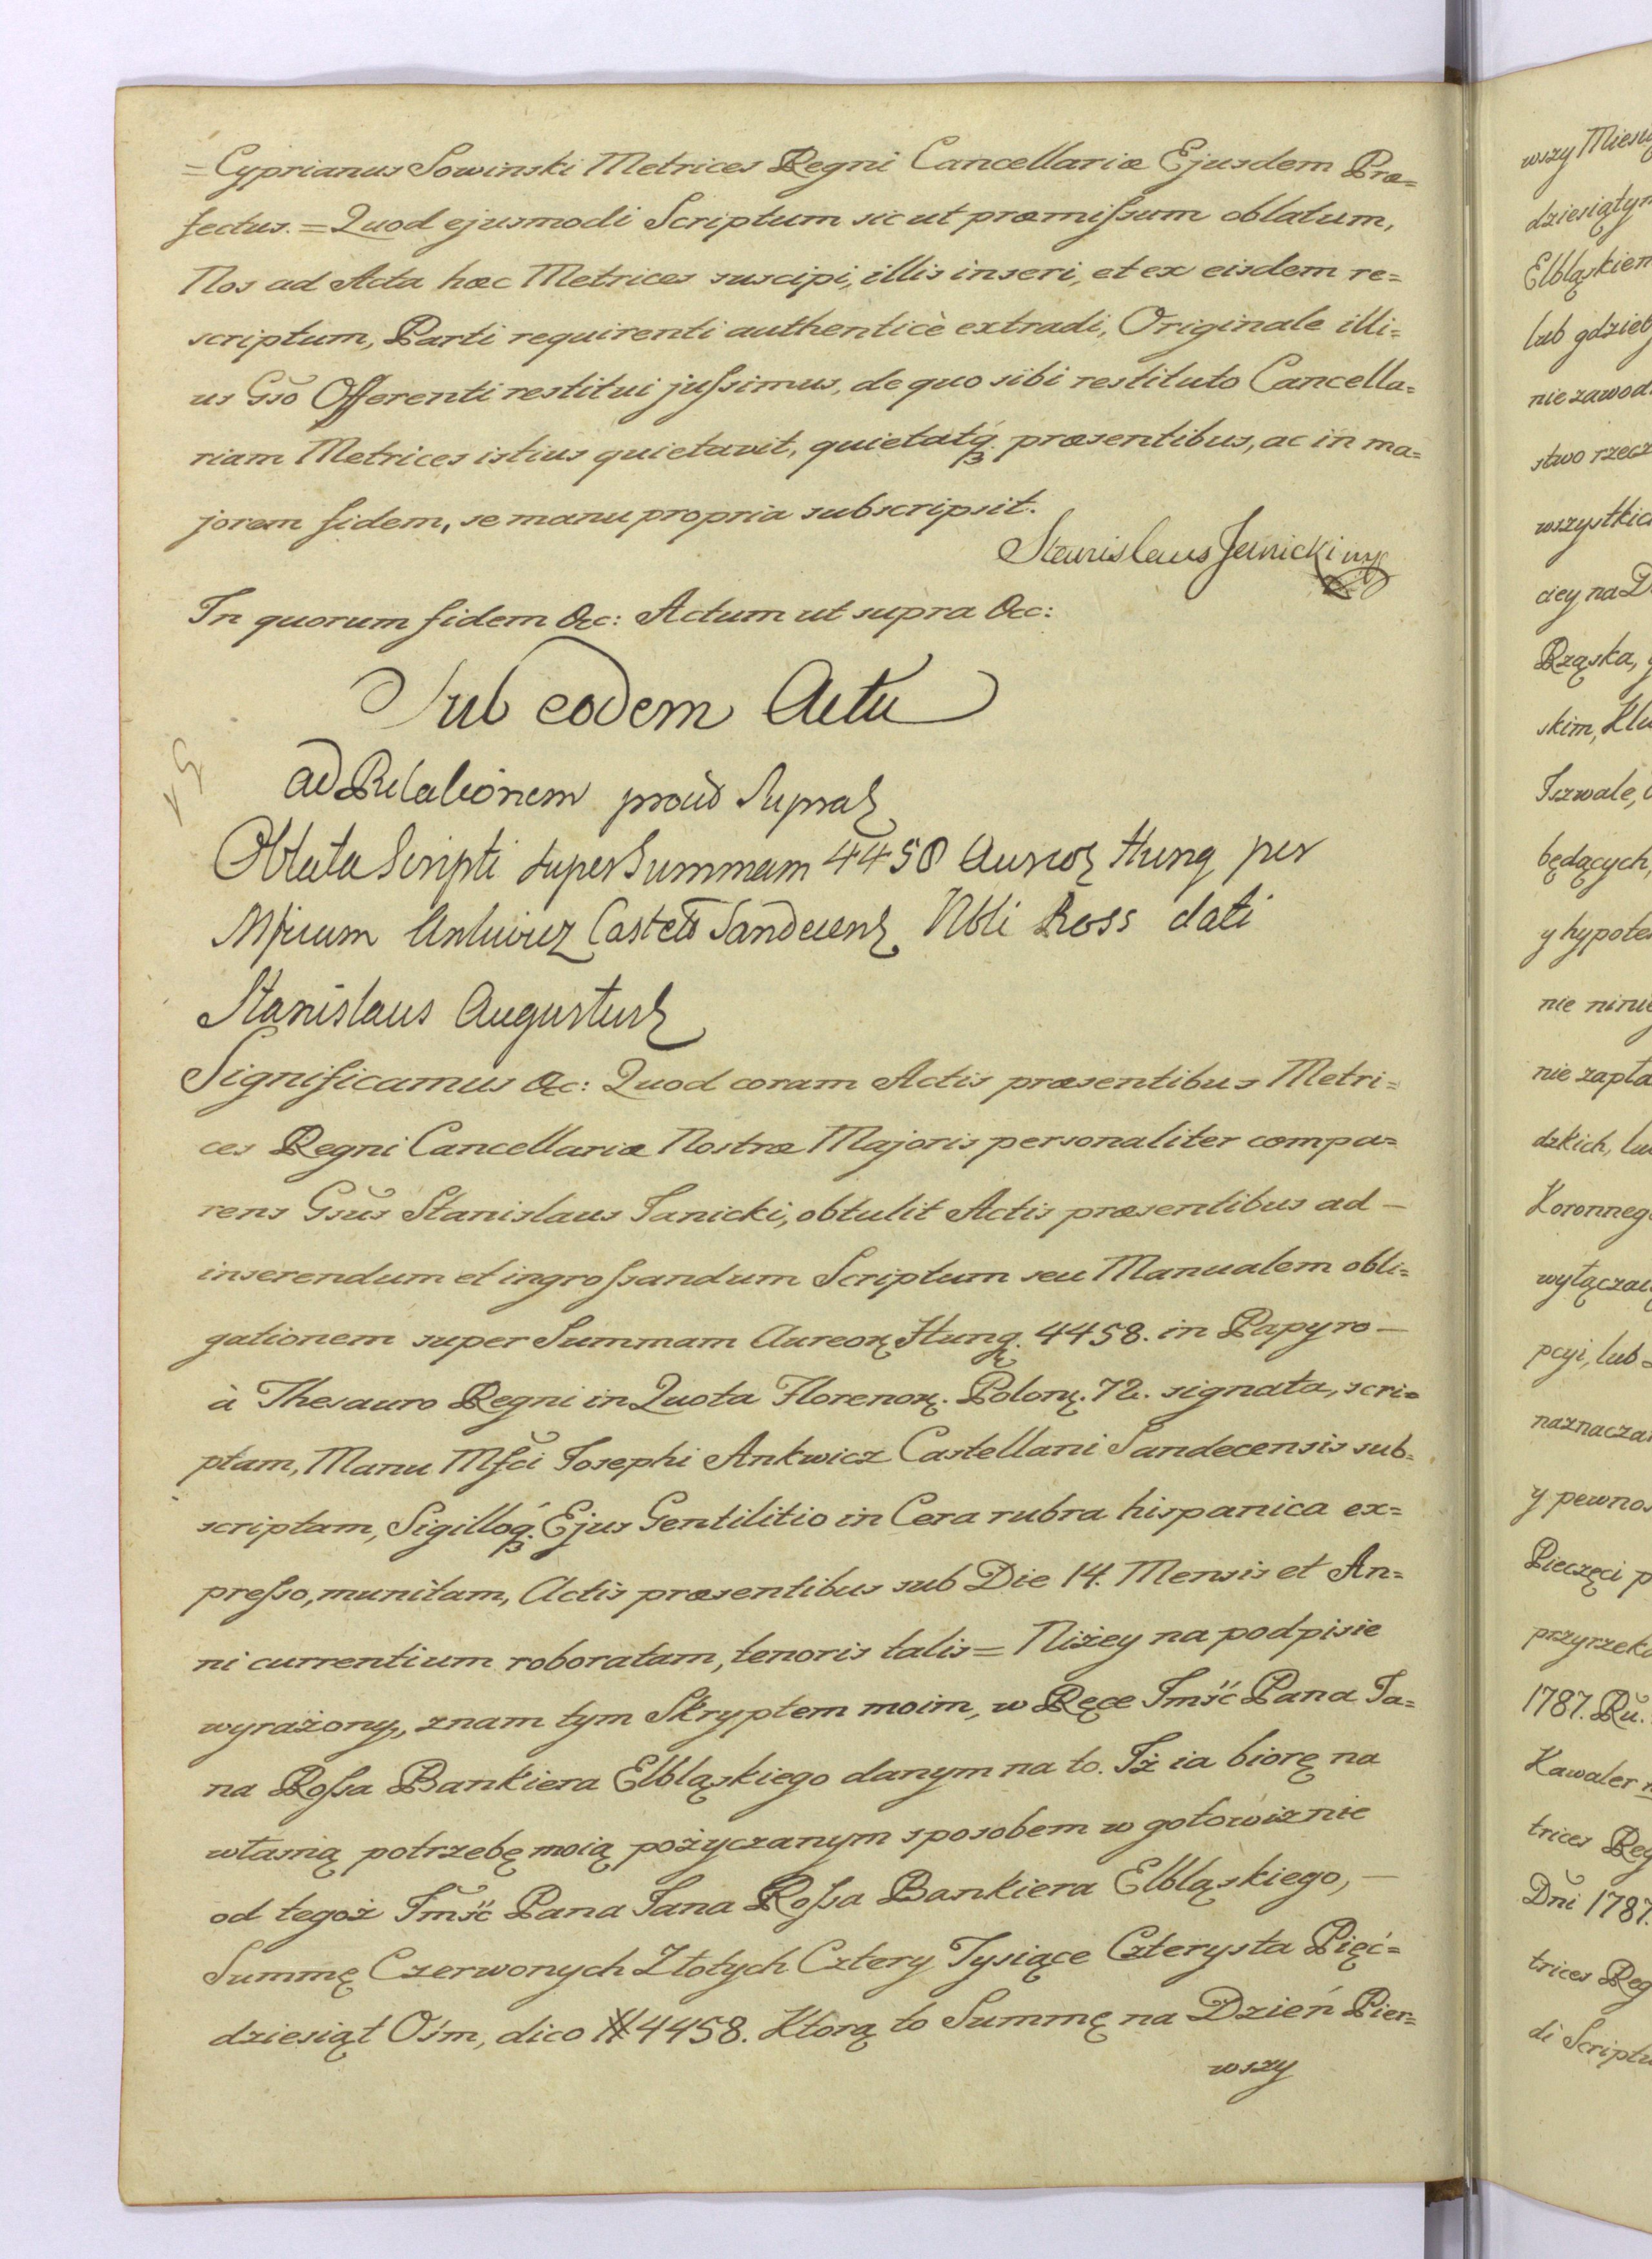 = Cyprianus Sowinski Metrices Regni Cancellariæ Ejusdem Præ=
fectus. = Quod ejusmodi Scriptum sic ut præmissum oblatum,
Nos ad Acta hæc Metrices suscipi, illis inseri, et ex eisdem re=
scriptum, Parti requirenti authenticè extradi, Originale illi=
us Gsō Offerenti restitui jussimus, de quo sibi restituto Cancella=
riam Metrices istius quietavit, quietatq₃ præsentibus, ac in ma=
jorem fidem, se manu propria subscripsit.
Stanislaus Janicki mp
In quorum fidem &c: Actum ut supra &c:
Sub eodem Actu
ad Relationem prout Supra
Oblata Scripti super Summam 4458 Aureoꝝ Hung per
Mficum Ankwicz Castell Sandecens Nbli Ross dati
Stanislaus Augustus
Significamus &c: Quod coram Actis præsentibus Metri=
ces Regni Cancellariæ Nostræ Majoris personaliter compa=
rens Gsūs Stanislaus Janicki, obtulit Actis præsentibus ad —
inserendum et ingrossandum Scriptum seu Manualem obli=
gationem super Summam Aureoꝝ Hung. 4458. in Papyro —
à Thesauro Regni in Quota Florenoꝝ. Polonꝝ. 72. signata, scri=
ptam, Manu Mfci Josephi Ankwicz Castellani Sandecensis sub=
scriptam, Sigilloq₃ Ejus Gentilitio in Cera rubra hispanica ex=
presso, munitam, Actis præsentibus sub Die 14. Mensis et An=
ni currentium roboratam, tenoris talis = Niżey na podpisie
wyrażony, znam tym Skryptem moim, w Ręce Jmść Pana Ja=
na Rossa Bankiera Elbląskiego danym na to. Iż ia biorę na
własną potrzebę moią pożyczanym sposobem w gotowiznie
od tegoż Jmść Pana Jana Rossa Bankiera Elbląskiego, —
Summę Czerwonych Złotych Cztery Tysiące Czterysta Pięć=
dziesiąt Ośm, dico # 4458. Ktorą to Summę na Dzień Pier=
wszy
wszy
dziesiątym
Elbląskiem
lub gdzieb
nie zawod
stwo rzecz
wszystkic
ciey na D
Rząska,
skim, Klu
Iszwale,
będących,
y hypote
nie
nie zapła
dzkich,
Koronneg
wyłącza
pcyi, lub
naznacza
y pewnos
Pieczęci p
przyrzeka
1787. Ru.
Kawaler
trices Reg
Dni 1787.
trices Reg
di Scriptu